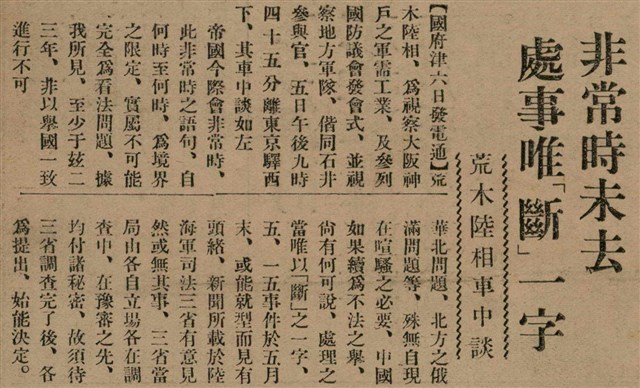 非常時未去
處事唯「斷」一字
荒木陸相車中談
【國府津六日發電通】荒
木陸相、爲視察大阪神
戶之軍需工業、及參列
國防議會發會式、並視
察地方軍隊、偕同石井
參與官、五日午後九時
四十五分離東京驛西
下、其車中談如左
帝國今際會非常時、
此非常時之語句、自
何時至何時、爲境界
之限定、實屬不可能
完全爲看法問題、據
我所見、至少于玆二
三年、非以舉國一致
進行不可
華北問題、北方之俄
滿問題等、殊無自現
在喧騷之必要、中國
如果續爲不法之舉、
尙有何可說、處理之
當唯以「斷」之一字、
五、一五事件於五月
末、或能就型而見有
頭緒、新聞所載於陸
海軍司法三省有意見
然或無其事、三省當
局由各自立場各在調
查中、在豫審之先、
均付諸秘密、故須待
三省調查完了後、各
爲提出、始能決定。